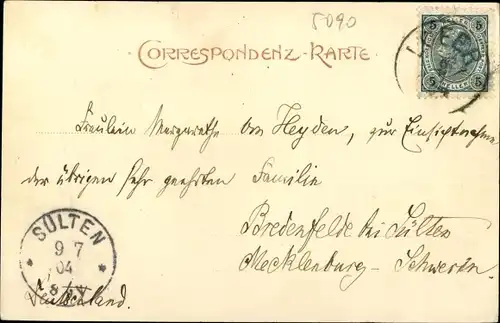 5090
CORRESPONDENZ-KARTE
5 5
HELLER
5 5
Fräulein Margarethe von Heyden, zur Einsichtnahme
der übrigen sehr geehrten Familie
Bredenfelde bei Sülten
Mecklenburg-Schwerin.
SÜLTEN
9 7
04
Deutschland.